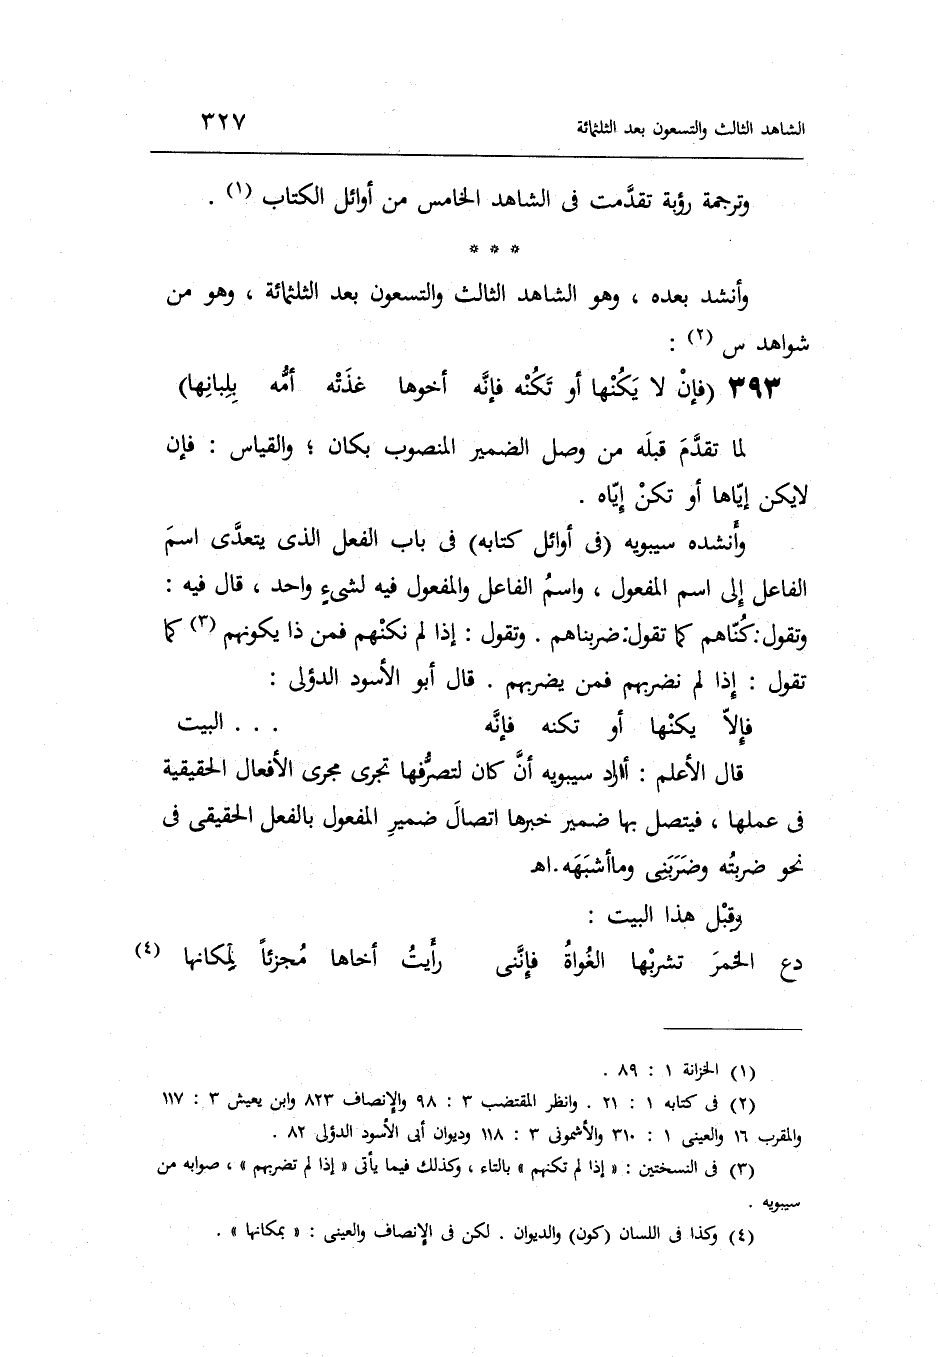 الشاهد الثالث والتسعون بعد الثلثمائة ٣٢٧
وترجمة رؤبة تقدَّمت فى الشاهد الخامس من أوائل الكتاب (١) .
* * *
وأنشد بعده ، وهو الشاهد الثالث والتسعون بعد الثلثمائة ، وهو من
شواهد س (٢) :
٣٩٣ (فإنْ لا يَكُنْها أو تَكُنْه فإنَّه أخوها غذَتْه أمُّه بِلِبانِها)
لما تقدَّمَ قبلَه من وصل الضمير المنصوب بكان ؛ والقياس : فإن
لايكن إيّاها أو تكنْ إيّاه .
وأَنشده سيبويه (فى أوائل كتابه) فى باب الفعل الذى يتعدَّى اسمَ
الفاعل إلى اسم المفعول ، واسمُ الفاعل والمفعول فيه لشىءٍ واحد ، قال فيه :
وتقول: كُنّاهم كما تقول: ضربناهم . وتقول : إذا لم نكنْهم فمن ذا يكونهم (٣) كما
تقول : إذا لم نضربهم فمن يضربهم . قال أبو الأسود الدؤلى :
فإلاّ يكنْها أو تكنه فإنَّه . . . البيت
قال الأعلم : أراد سيبويه أنَّ كان لتصرُّفها تجرى مجرى الأفعال الحقيقية
فى عملها ، فيتصل بها ضمير خبرها اتصالَ ضميرِ المفعول بالفعل الحقيقى فى
نحو ضربتُه وضَرَبَنِى وماأشبَهَه.اهـ
وقبْل هذا البيت :
دع الخمرَ تشربْها الغُواةُ فإنَّنى رأَيتُ أخاها مُجزئاً لِمكانها (٤)
(١) الخزانة ١ : ٨٩ .
(٢) فى كتابه ١ : ٢١ . وانظر المقتضب ٣ : ٩٨ والإنصاف ٨٢٣ وابن يعيش ٣ : ١١٧
والمقرب ١٦ والعينى ١ : ٣١٠ والأشمونى ٣ : ١١٨ وديوان أبى الأسود الدؤلى ٨٢ .
(٣) فى النسختين : « إذا لم تكنهم » بالتاء ، وكذلك فيما يأتى « إذا لم تضربهم » ، صوابه من
سيبويه .
(٤) وكذا فى اللسان (كون) والديوان . لكن فى الإنصاف والعينى : « بمكانها » .